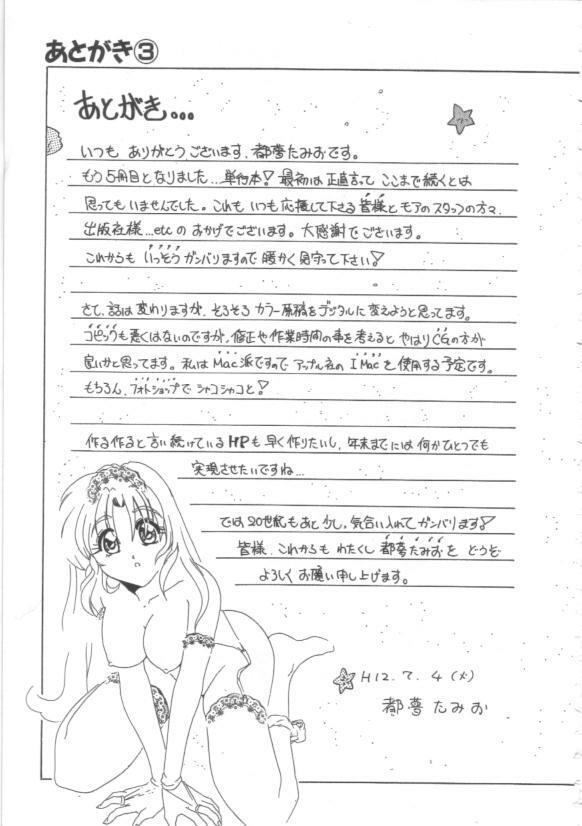 あとがき③
あとがき...
いつも ありがとうございます、都夢たみおです。
もう5冊目となりました...単行本! 最初は正直言って ここまで続くとは
思ってもいませんでした。これも いつも応援して下さる皆様とモアのスタッフの方々、
出版社様...etc のおかげでございます。大感謝でございます。
これからも いっそうガンバリますので 暖かく見守って下さい!
さて、話は変わりますが、そろそろ カラー原稿をデジタルに変えようと思ってます。
コピックも悪くはないのですが、修正や作業時間の事を考えると やはりCGの方が
良いかと思ってます。私はMac派ですので アップル社の I Macを使用する予定です。
もちろん、フォトショップで シャコシャコと!
作る作ると言い続けているHPも 早く作りたいし、年末までには 何かひとつでも
実現させたいですね...
では 20世紀もあと少し、気合い入れて ガンバリます!
皆様、これからも わたくし 都夢たみおを どうぞ
よろしく お願い申し上げます。
H12.7.4(火)
都夢たみお